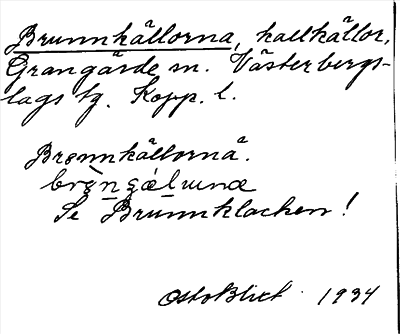 Brunnkällorna, kallkällor,
Grangärde sn. Västerbergs-
lags tg. Kopp. l.
Brønnkällornå.
Se Brunnklacken!
Otto Blixt 1934